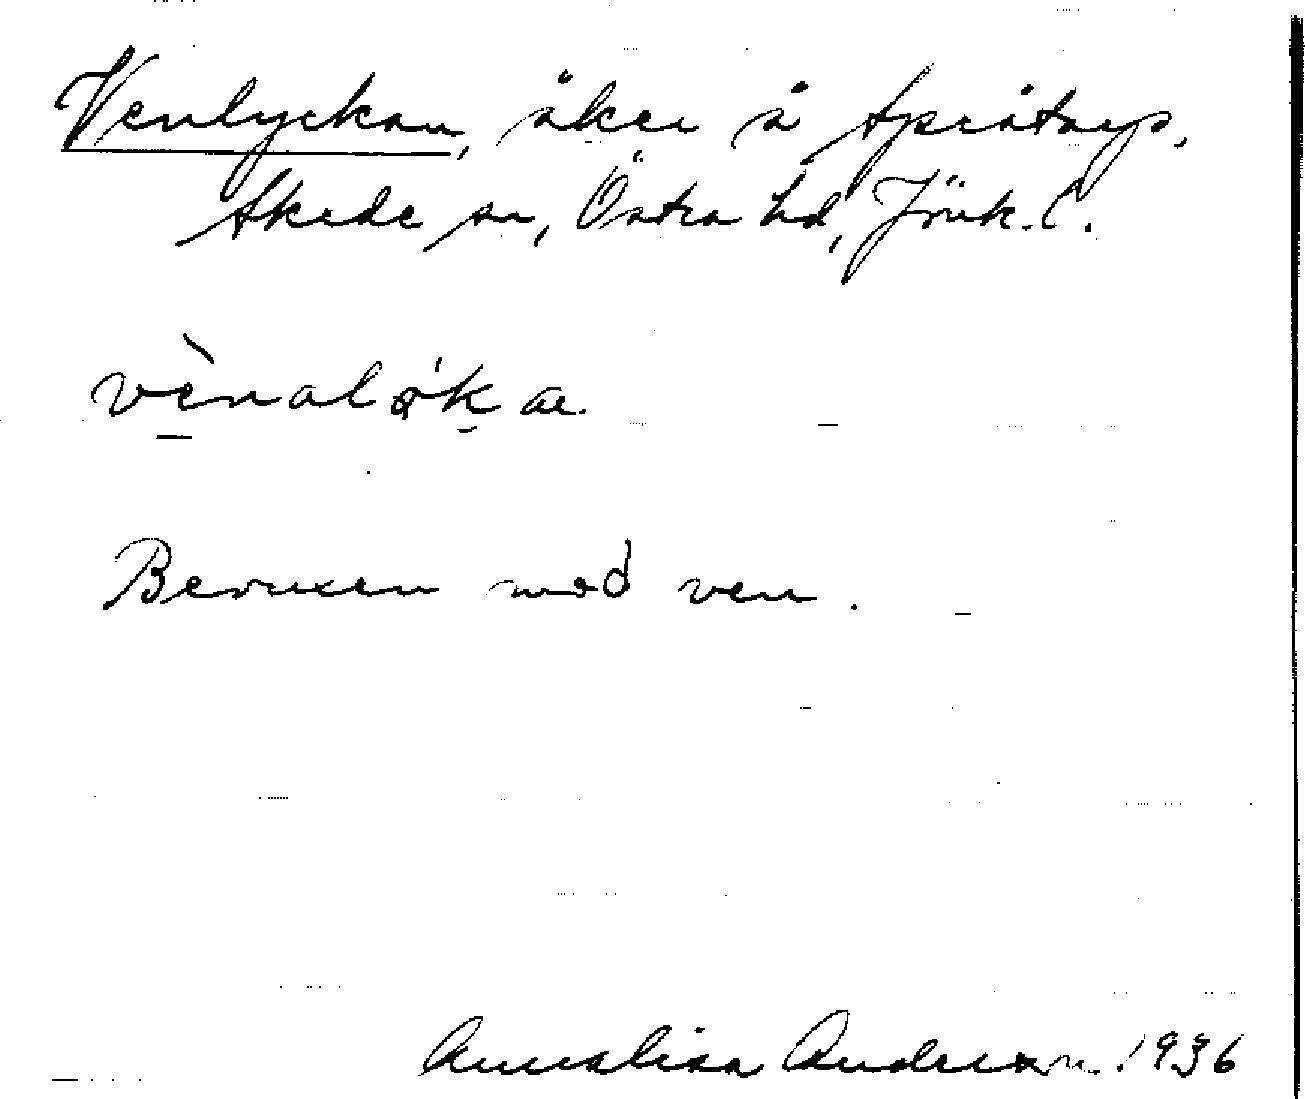 Venlyckan, åker å Språtorp,
Skede sn, Östra hd, Jönk. L.
vènalökaɩ.
Bevuxen med ven.
Annalisa Andersson. 1936